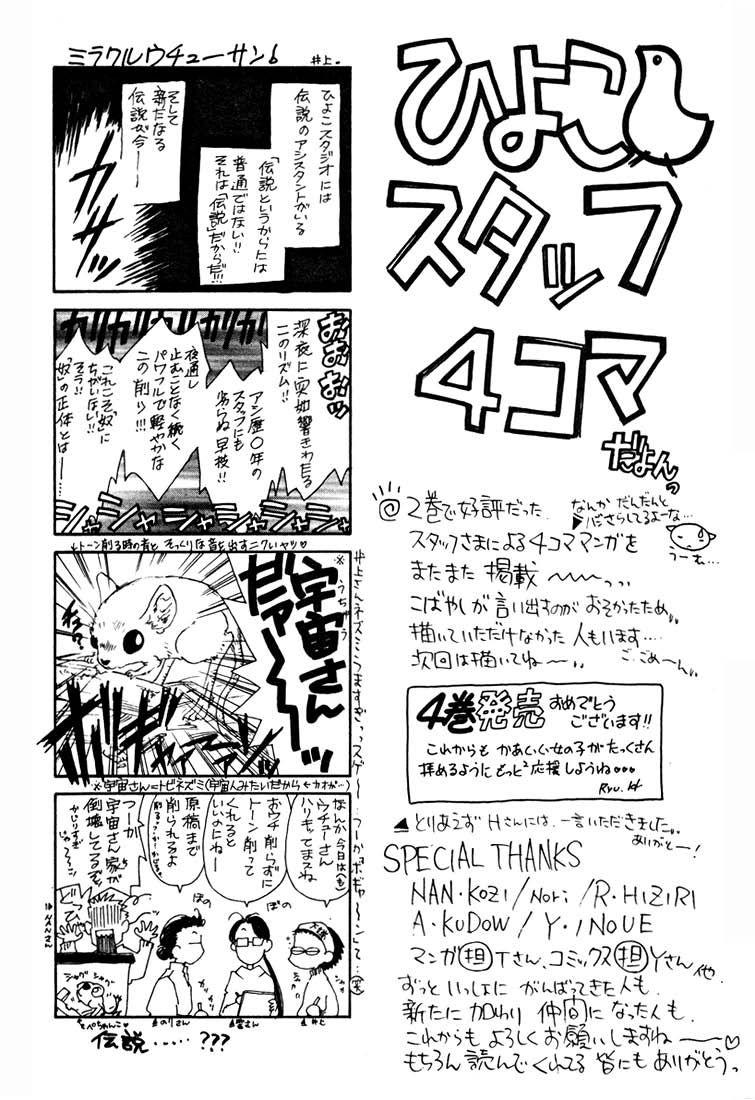 ひよこ
スタッフ
4コマ
だよんっ
2巻で好評だった
なんか だんだんと
スタッフさまによる4コママンガを
うーむ…
またまた 掲載〜〜っっ
こばやしが言い出すのが おそかったため
描いていただけなかった 人もいます‥‥
次回は描いてね〜〜
ご、ごめ〜ん
4巻発売 おめでとう
ございます!!
これからも かあいい女の子がたっくさん
拝めるように もっと²応援しようね
Ryu.H
▲とりあえず Hさんには、一言いただきました
ありがと〜!
SPECIAL THANKS
NAN・KOZI/NORI/R・HIZIRI
A・KUDOW/Y・INOUE
マンガ担Tさん、コミックス担Yさん 他
ずっといっしょに がんばってきた人も、
新たに 加わり 仲間に なった人も、
これからも よろしく お願いしますね〜〜♡
もちろん 読んでくれてる 皆にも ありがとうっ
ミラクルウチューサン♭
井上。
ひよこスタジオには
伝説のアシスタントがいる
「伝説というからには
普通ではない!!
それは「伝説」だからだ!!!
そして
新たなる
伝説が今――
カサッ
おおおおッ
ガリガリガリガリ
深夜に突如響きわたる
このリズム!!
アシ歴〇年の
スタッフにも
劣らぬ早技!!
夜通し
止むことなく続く
パワフルで軽やかな
この削り!!!
これこそ「奴」に
ちがいない!!
そう!!
「奴」の正体とは――
シャシャシャシャシャ
↓トーン削る時の音と そっくりな音を出すニクいヤツ♡
※うちゅう
宇宙さん
だァ〜〜〜ッ
※宇宙さん=トビネズミ(宇宙人みたいだから
なんか今日は
ウチューさん
ハリキッてますね
おウチ削らずに
トーン削って
くれると
いいのにねー
原稿まで
削られるよ
つーか
宇宙さん家が
倒壊してるぞ
ほの
ほの
ぼの
▲のりさん
▲井上
伝説‥‥‥???